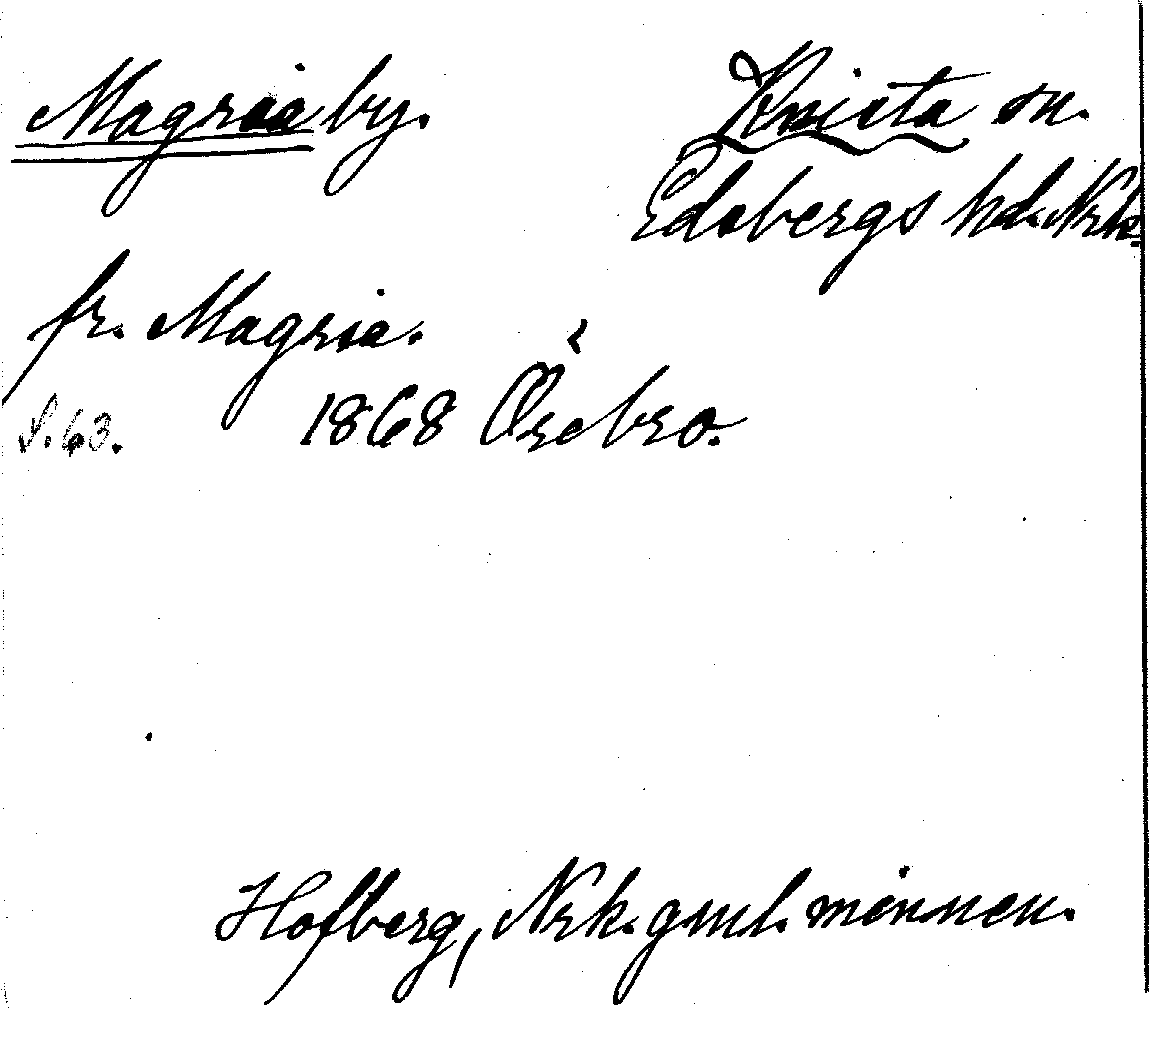 Magria by. Knista sn.
Edsbergs hd. Nrk.
fr. Magria.
S. 63. 1868 Örebro.
Hofberg, Nrk. gml. minnen.